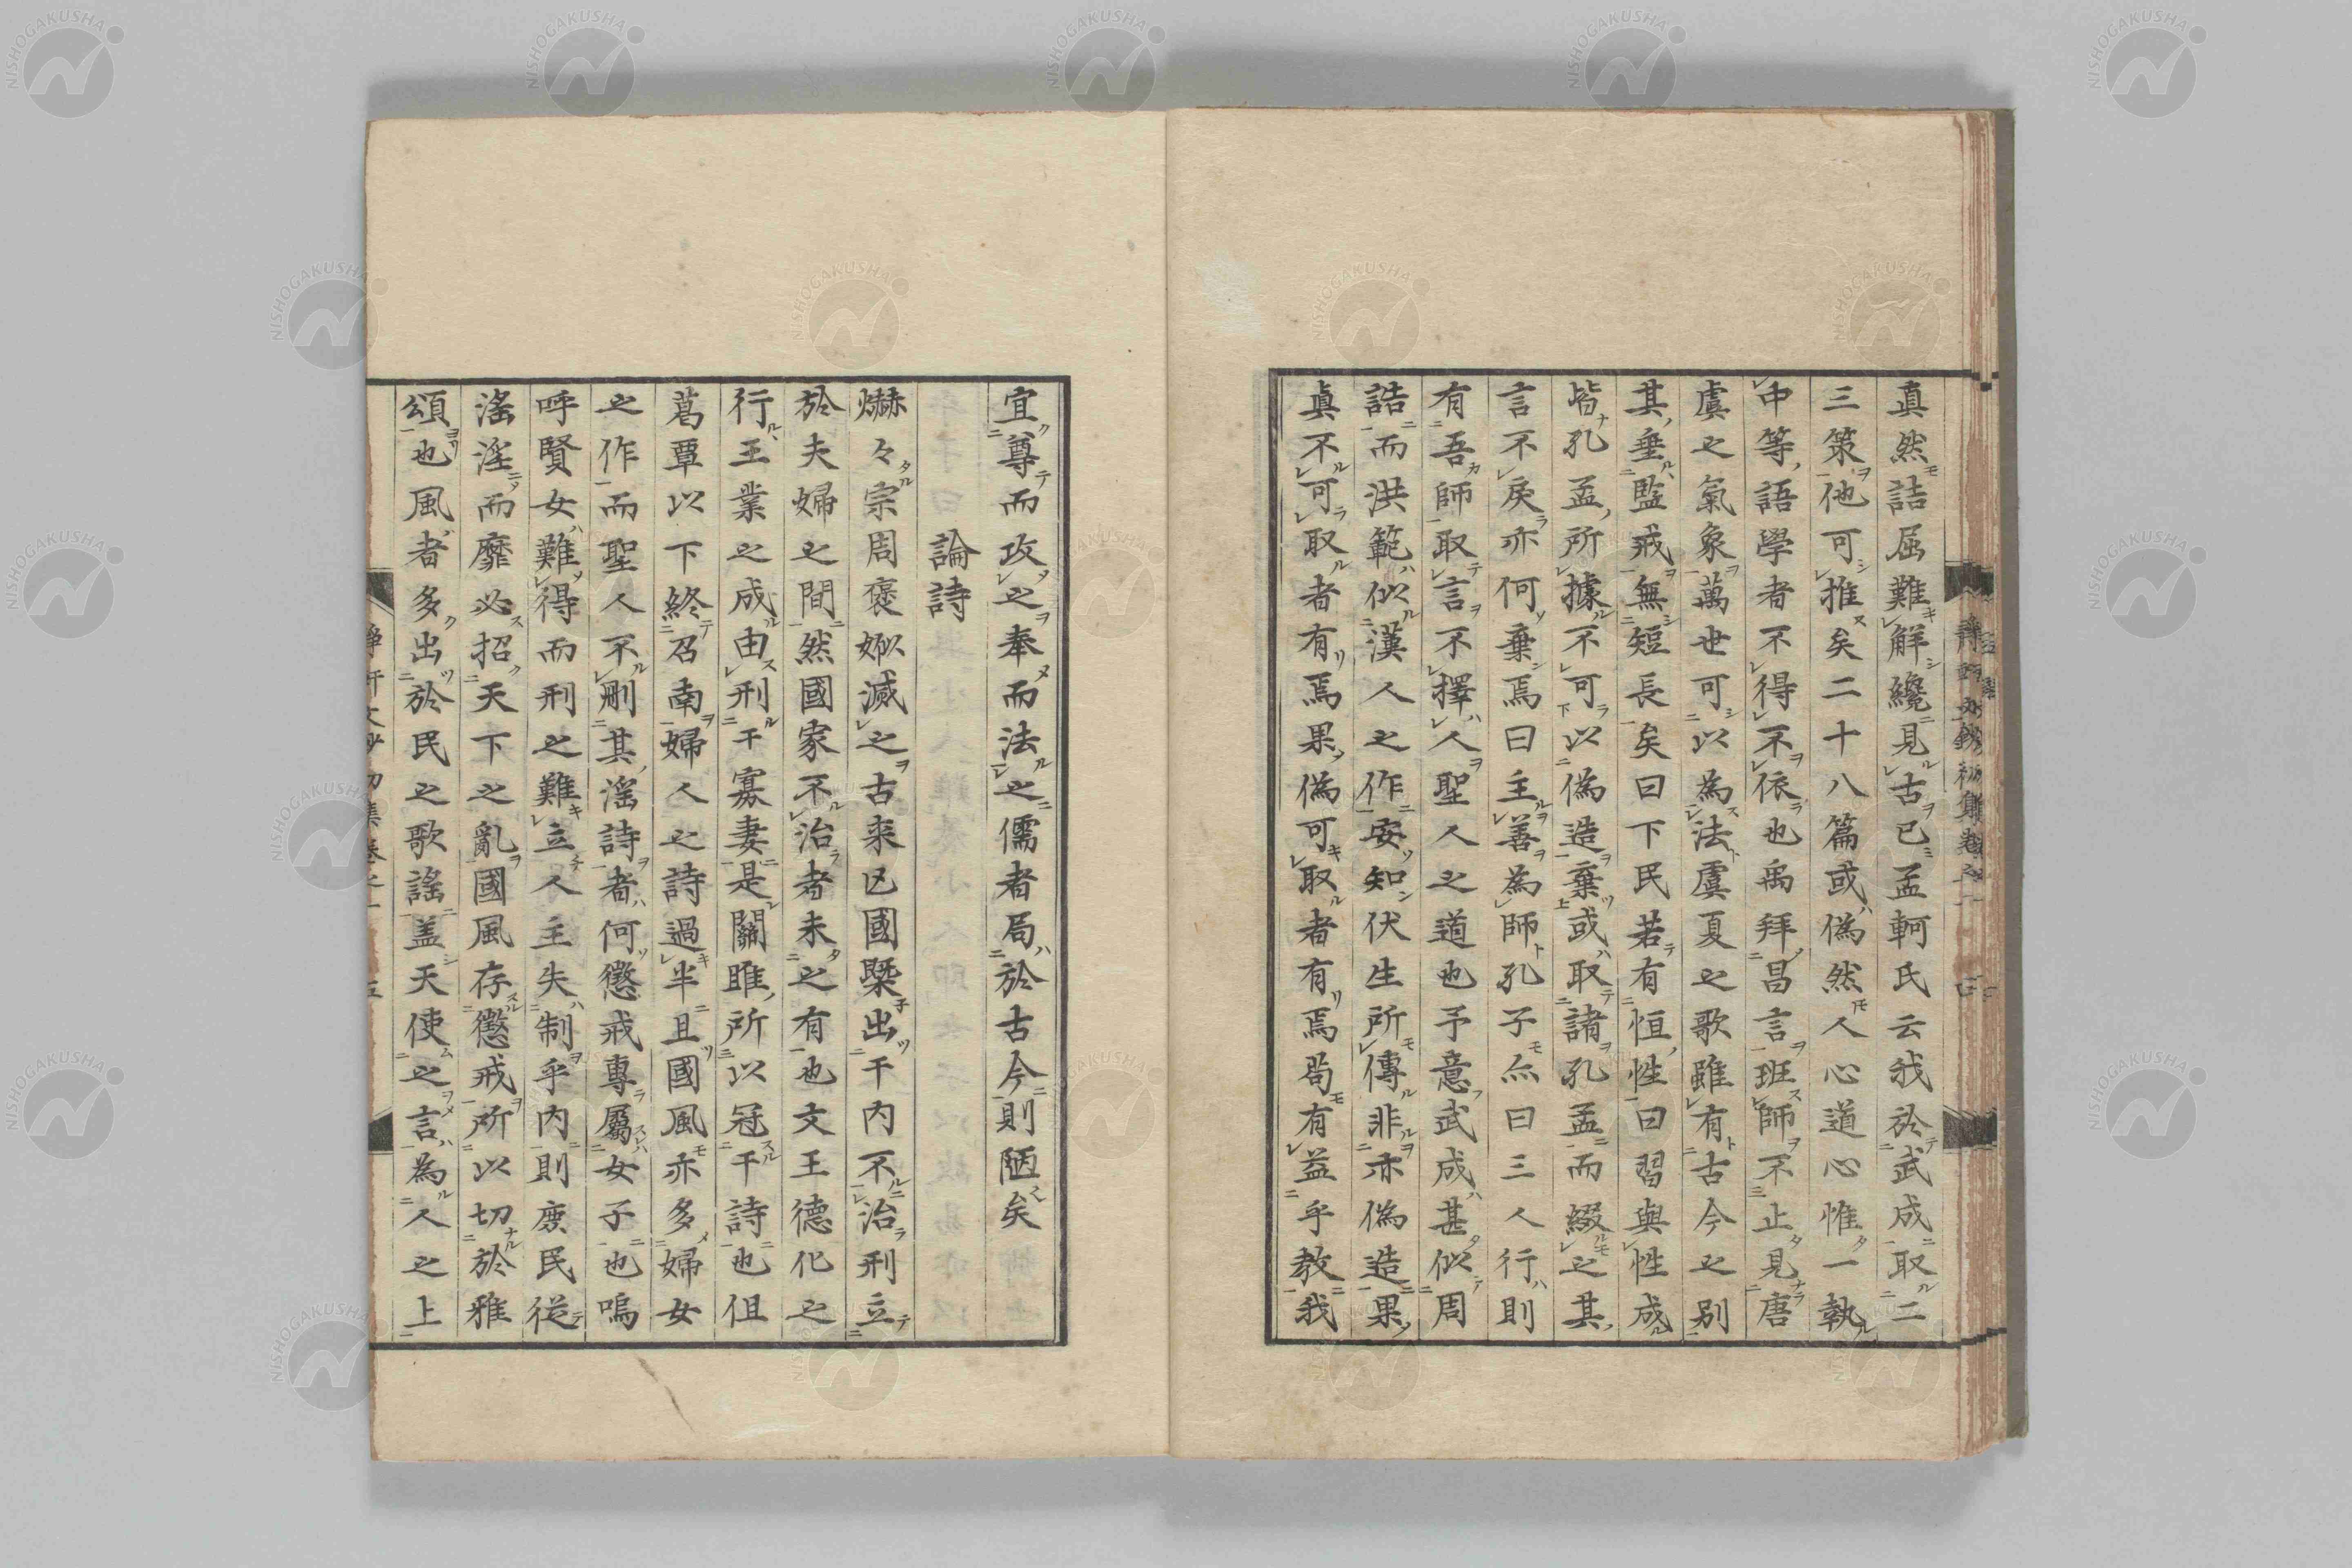 真然詰屈難解纔見古已孟軻氏云我於武成取二
三策他可推矣二十八篇或偽然人心道心惟一執
中等語學者不得不依也禹拜昌言班師不止見唐
虞之氣象萬世可以為法虞夏之歌雖有古今之别
其垂監戒無短長矣曰下民若有恒性曰習與性成
皆孔孟所據不可以偽造棄或取諸孔孟而綴之其
言不戾亦何棄焉曰主善為師孔子亦曰三人行則
有吾師取言不擇人聖人之道也予意武成甚似周
誥而洪範似漢人之作安知伏生所傳非亦偽造果
真不可取者有焉果偽可取者有焉尚有益乎教我
宜尊而攻之奉而法之儒者局於古今則陋矣
論詩
爀々宗周褒姒滅之古来亡國槩出于内不治刑立
於夫婦之間然國家不治者未之有也文王德化之
行王業之成由刑于寡妻是關雎所以冠于詩也但
葛覃以下終召南婦人之詩過半且國風亦多婦女
之作而聖人不刪其淫詩者何懲戒專屬女子也嗚
呼賢女難得而刑之難立人主失制乎内則庶民從
淫而靡必招天下之亂國風存懲戒所以切於雅
頌也風者多出於民之歌謠盖天使之言為人之上
NISHOGAKUSHA